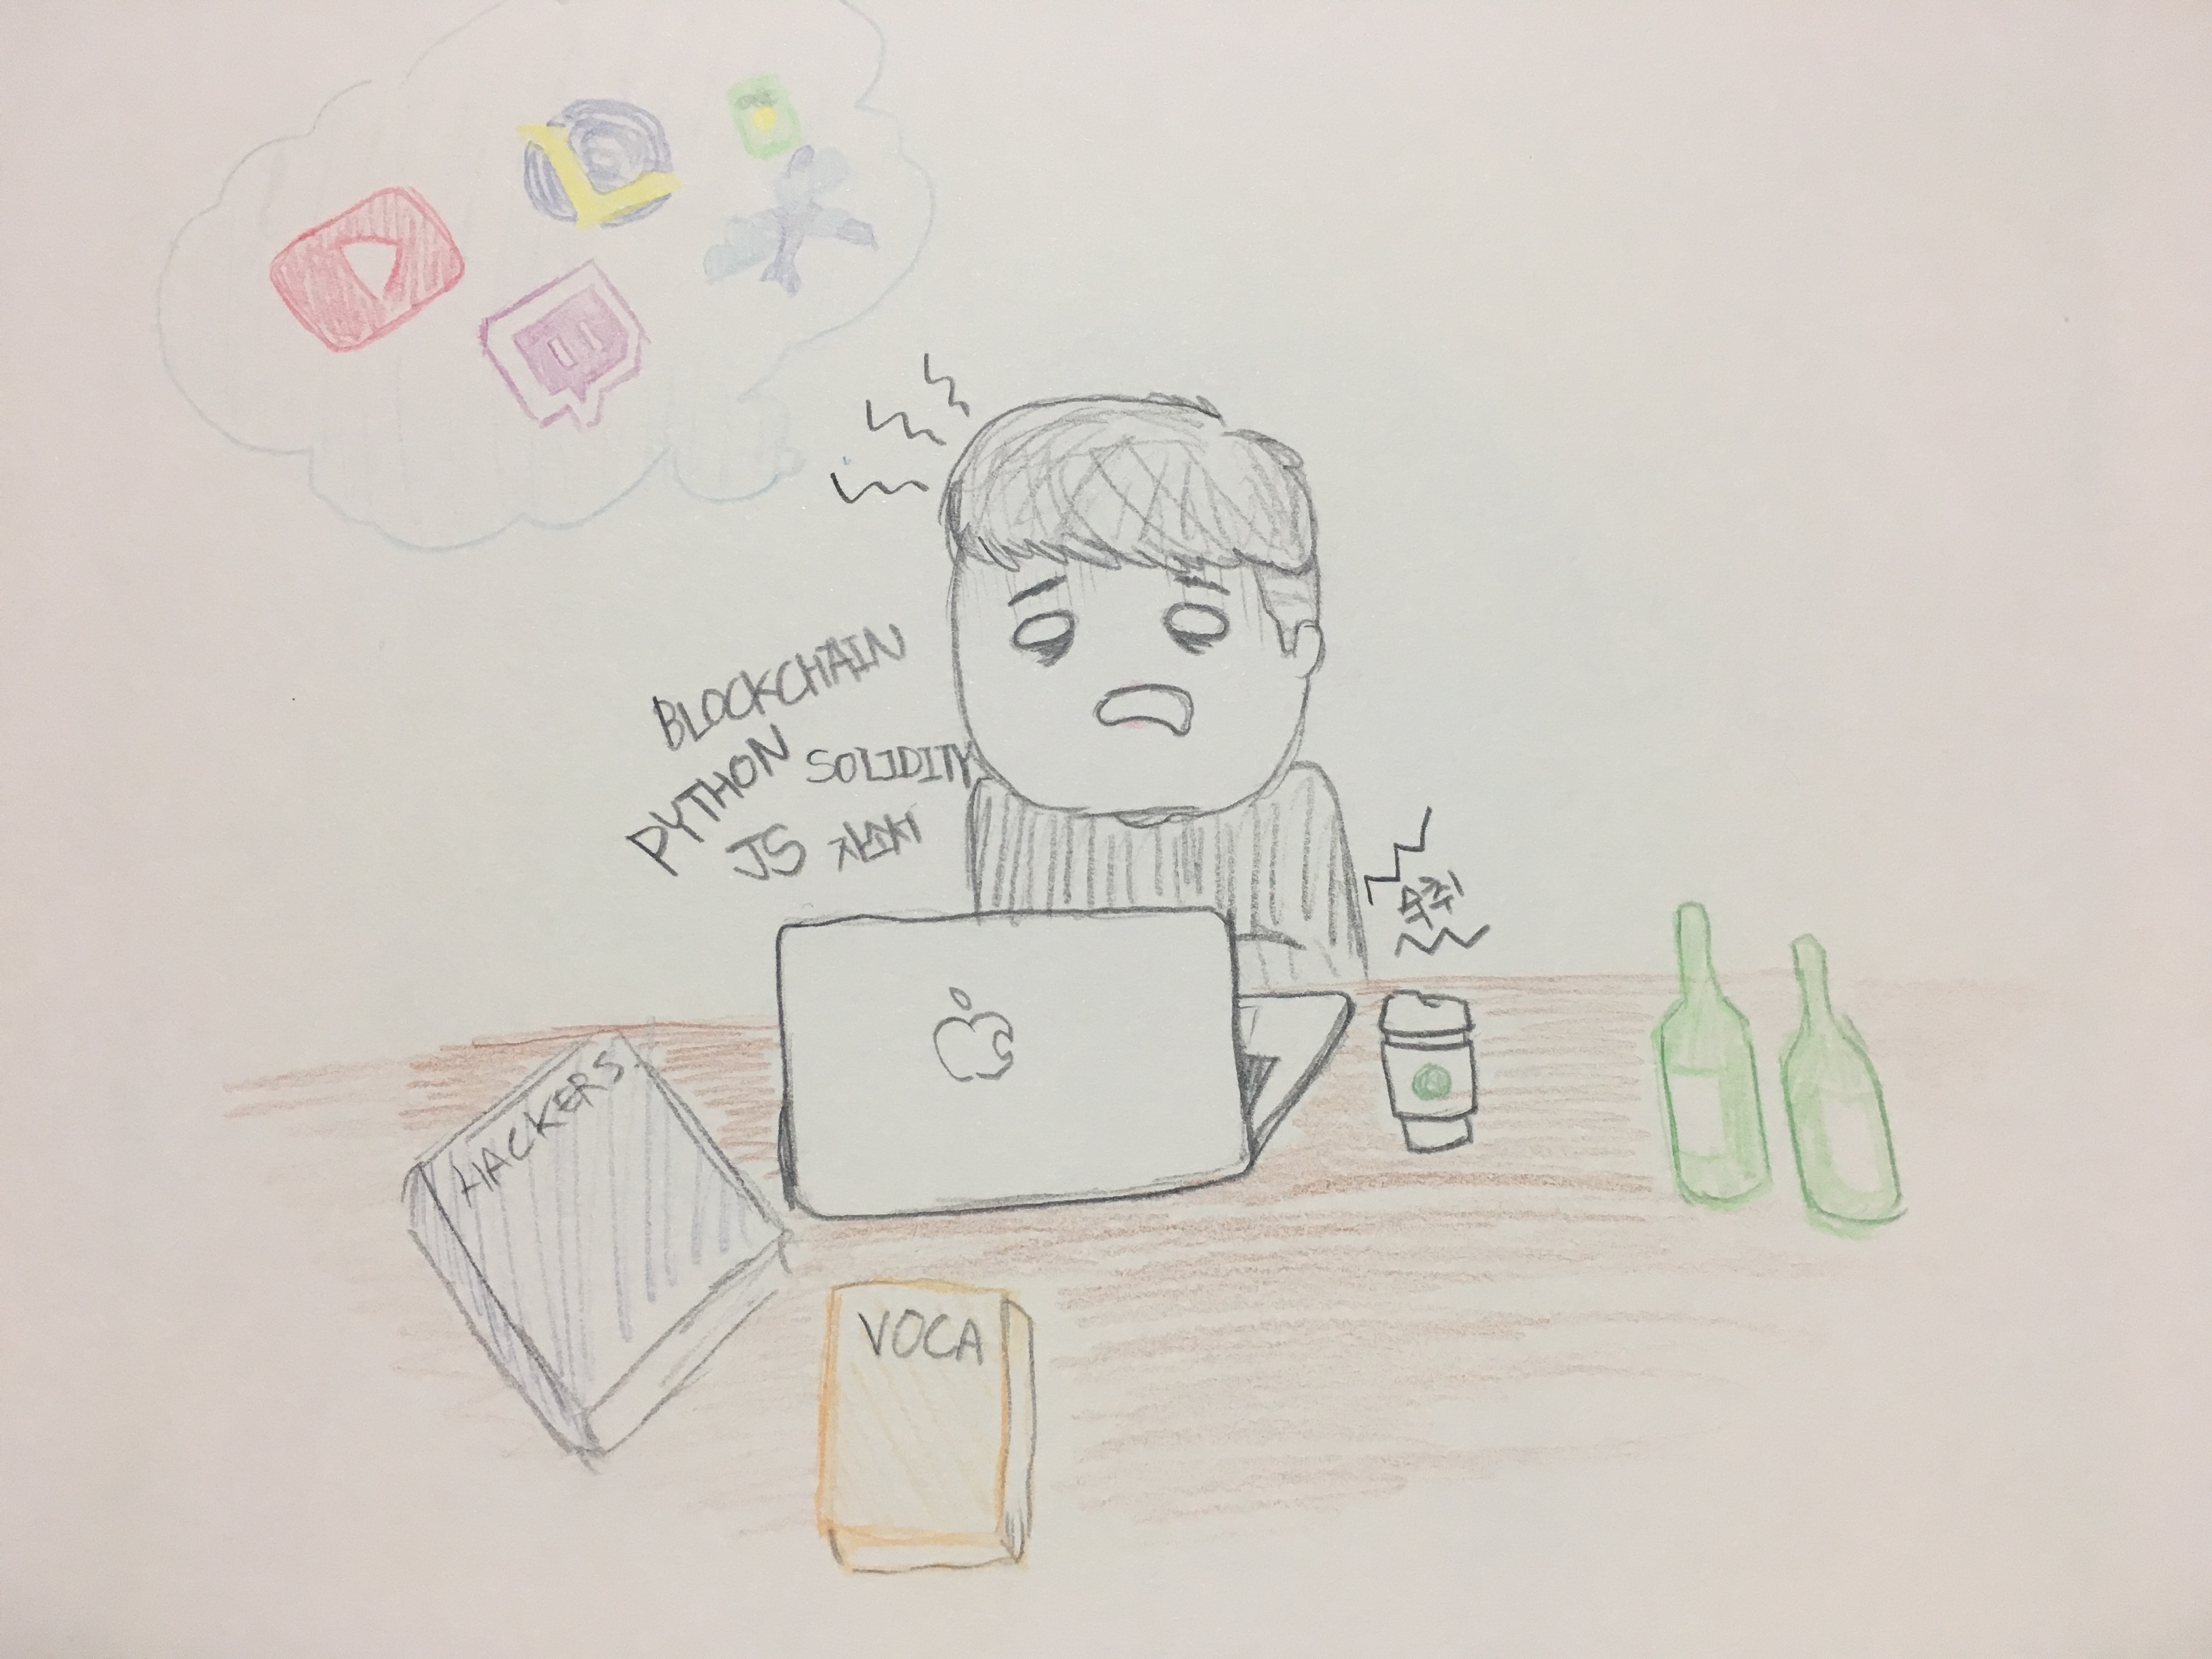 BLOCKCHAIN
PYTHON SOLIDITY
JS 자소서
숙취
HACKERS
VOCA